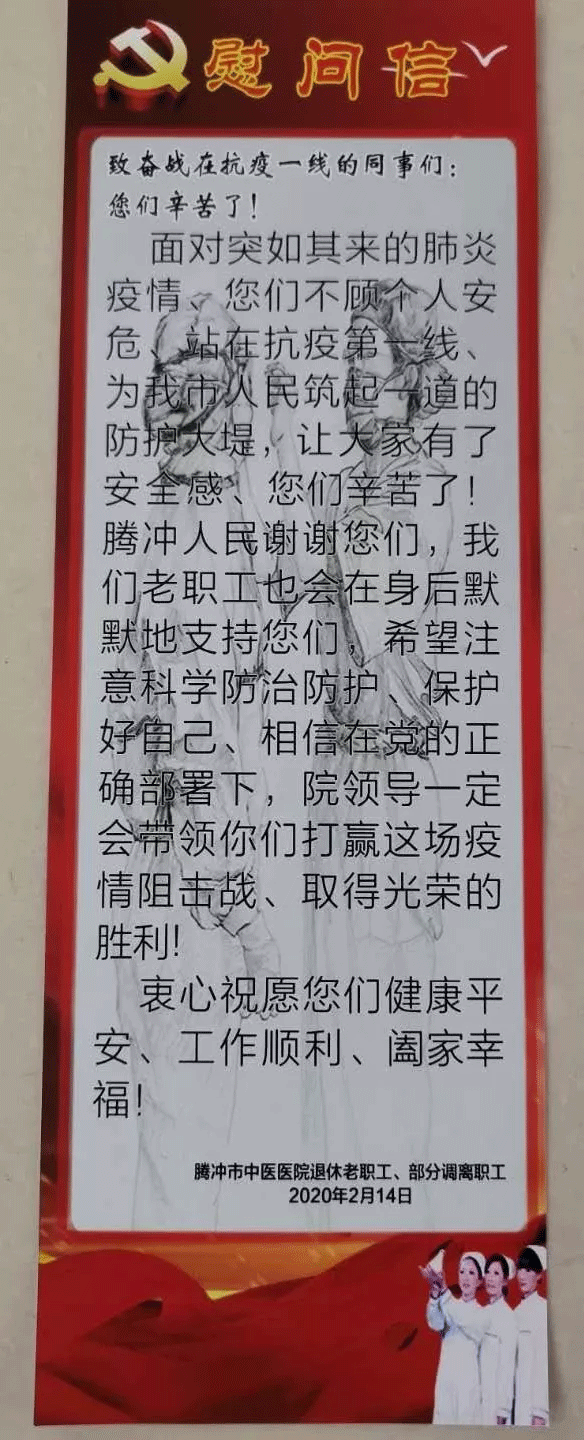 慰问信
致奋战在抗疫一线的同事们：
您们辛苦了！
面对突如其来的肺炎
疫情、您们不顾个人安
危、站在抗疫第一线、
为我市人民筑起一道的
防护大堤，让大家有了
安全感、您们辛苦了！
腾冲人民谢谢您们，我
们老职工也会在身后默
默地支持您们，希望注
意科学防治防护、保护
好自己、相信在党的正
确部署下，院领导一定
会带领你们打赢这场疫
情阻击战、取得光荣的
胜利！
衷心祝愿您们健康平
安、工作顺利、阖家幸
福！
腾冲市中医医院退休老职工、部分调离职工
2020年2月14日